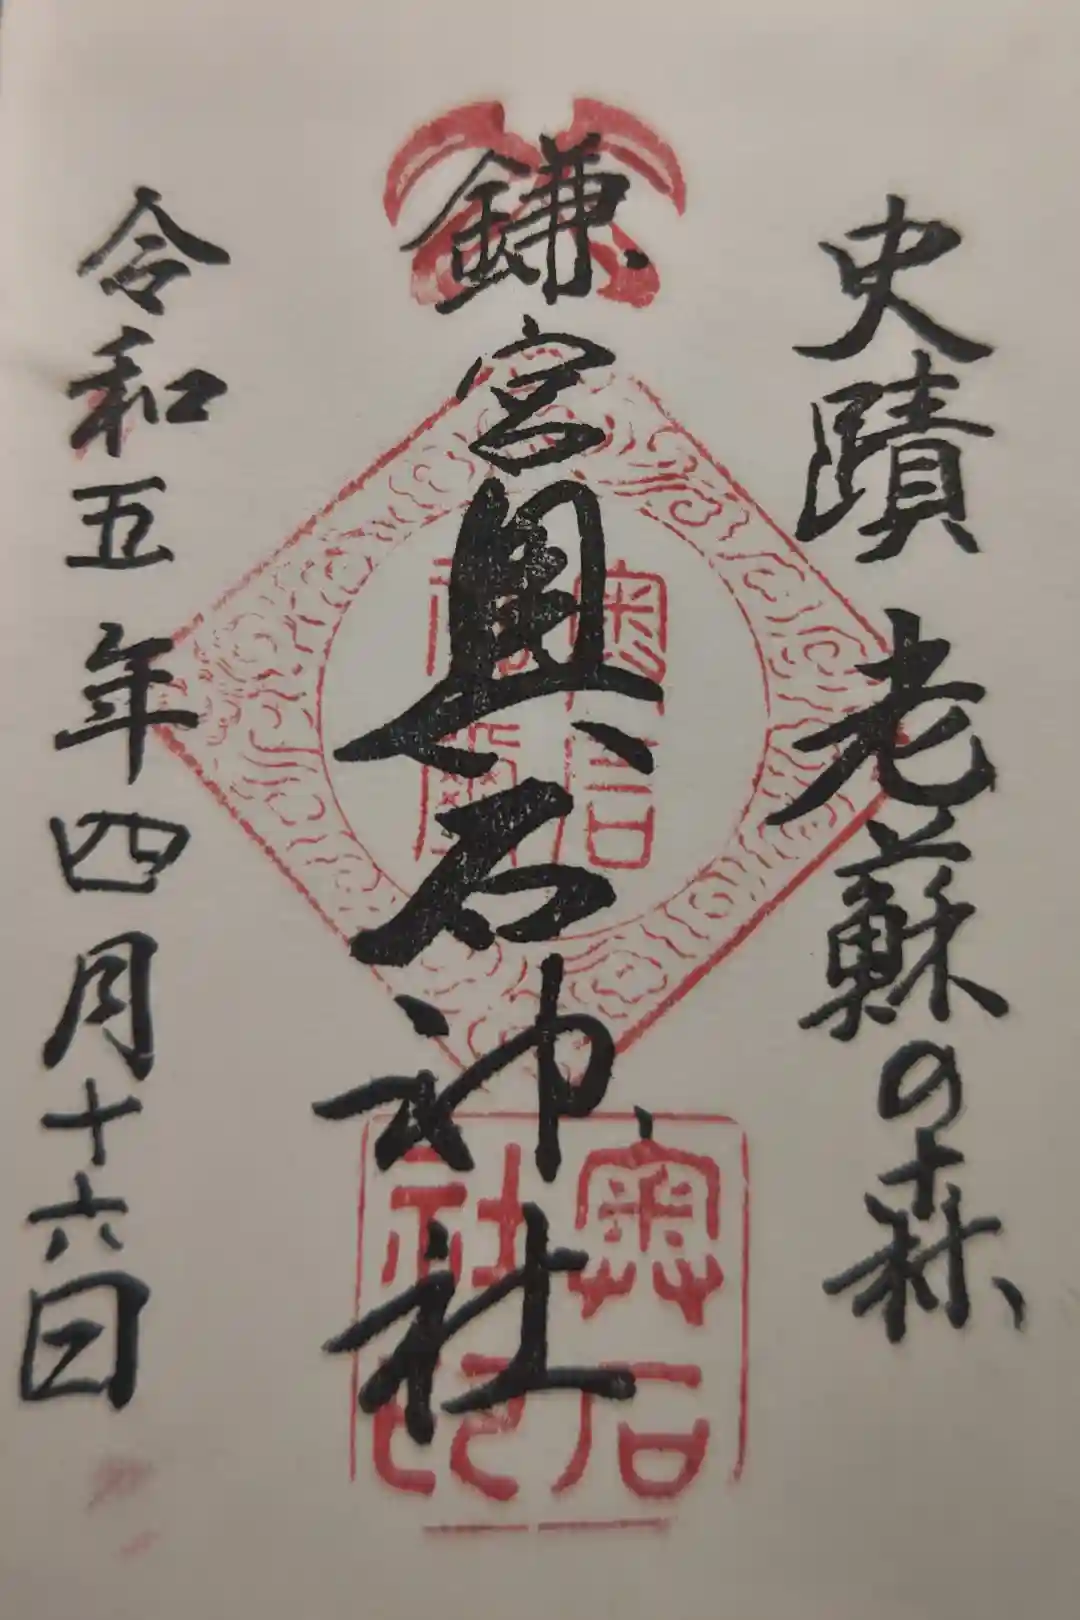 史蹟 老蘇の森
鎌宮奥石神社
令和五年四月十六日
奥石
奥石
社印